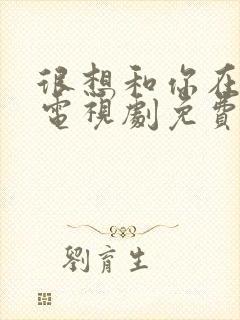 很想和你在
電視劇免費
劉育生